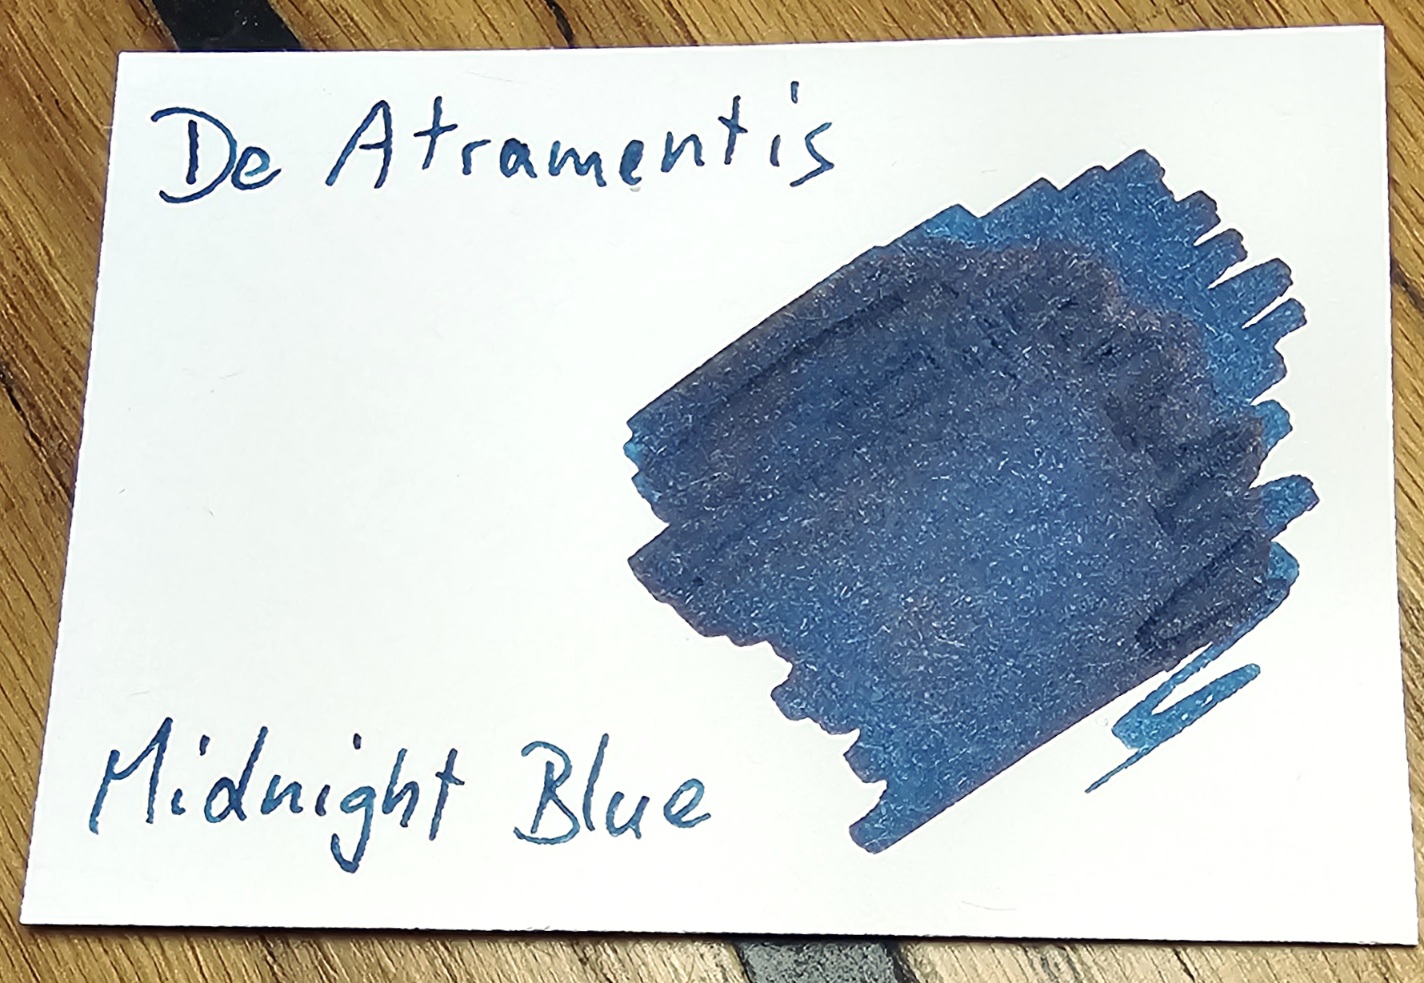 De Atramentis
Midnight Blue